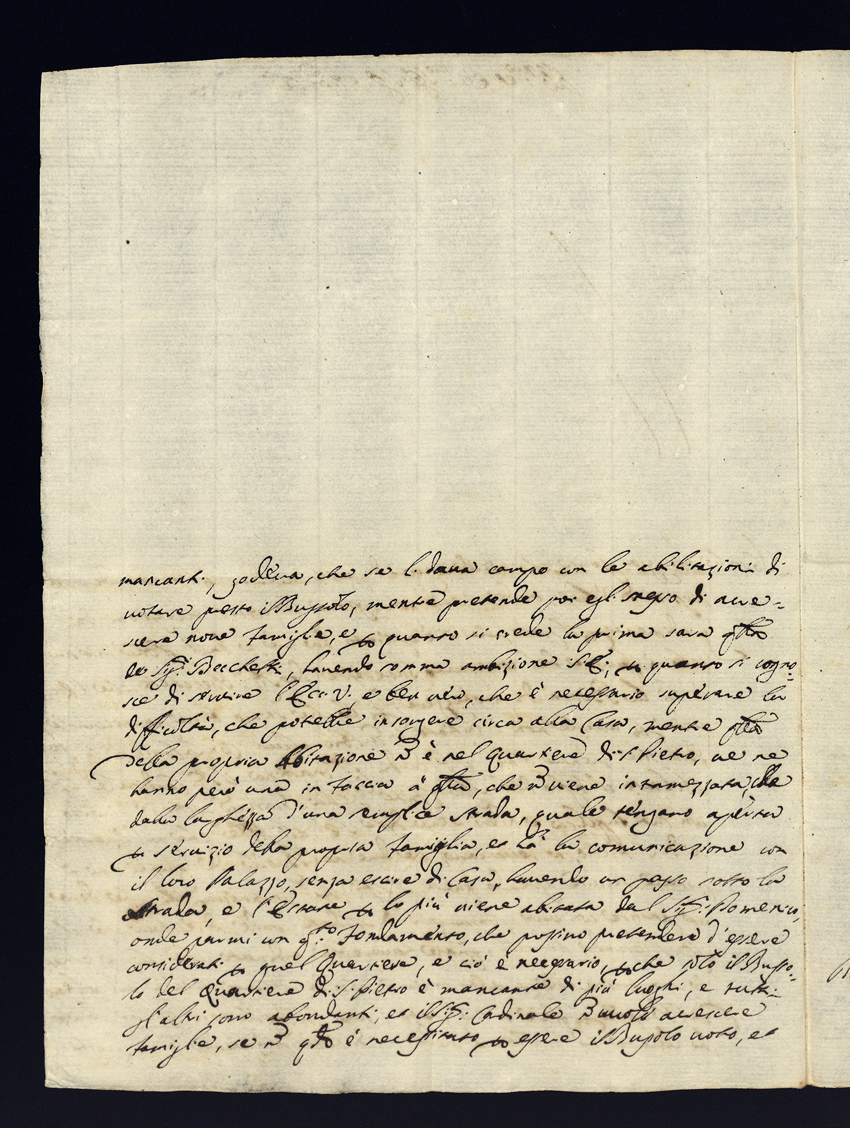 mancanti, godeva, che se li dava campo con le abilitazioni di
votare presto il Bussolo, mentre pretende poi egli stesso di accre=
scere nove famiglie, e p quanto si crede la prima sarà qsta
de Sig.ri Beccherti, havendo somma ambizione S.E., p quanto si cogno=
sce di servire l'Ecc. V., e ben vero, che è necessario superare la
difficoltà, che potebbe insorgere circa alla Casa, mentre qsta
della propria Abitazione ñ è nel quartiere di S. Pietro, ve ne
hanno però una in faccia à qsta, che ñ viene intramezzata, che
dalla larghezza d'una semplice strada, quale tengano aperta
p servizio della propria famiglia, et hà la comunicazione con
il loro Palazzo, senza escire di Casa, havendo un passo sotto la
strada, e l'Estate p lo più viene abitata dal Sig.r Domenico,
onde parmi con q.sto fondamento, che possino pretendere d'essere
considerati p quel Quartiere, e ciò è necessario, p che solo il Busso=
lo del Quartiere di S. Pietro è mancante di più luoghi, e tutti
gl'altri sono abondanti, et il Sig.r Cardinale ñ vuole acrescere
famiglie, se ñ qdo è necessitato p essere il Bussolo voto, et